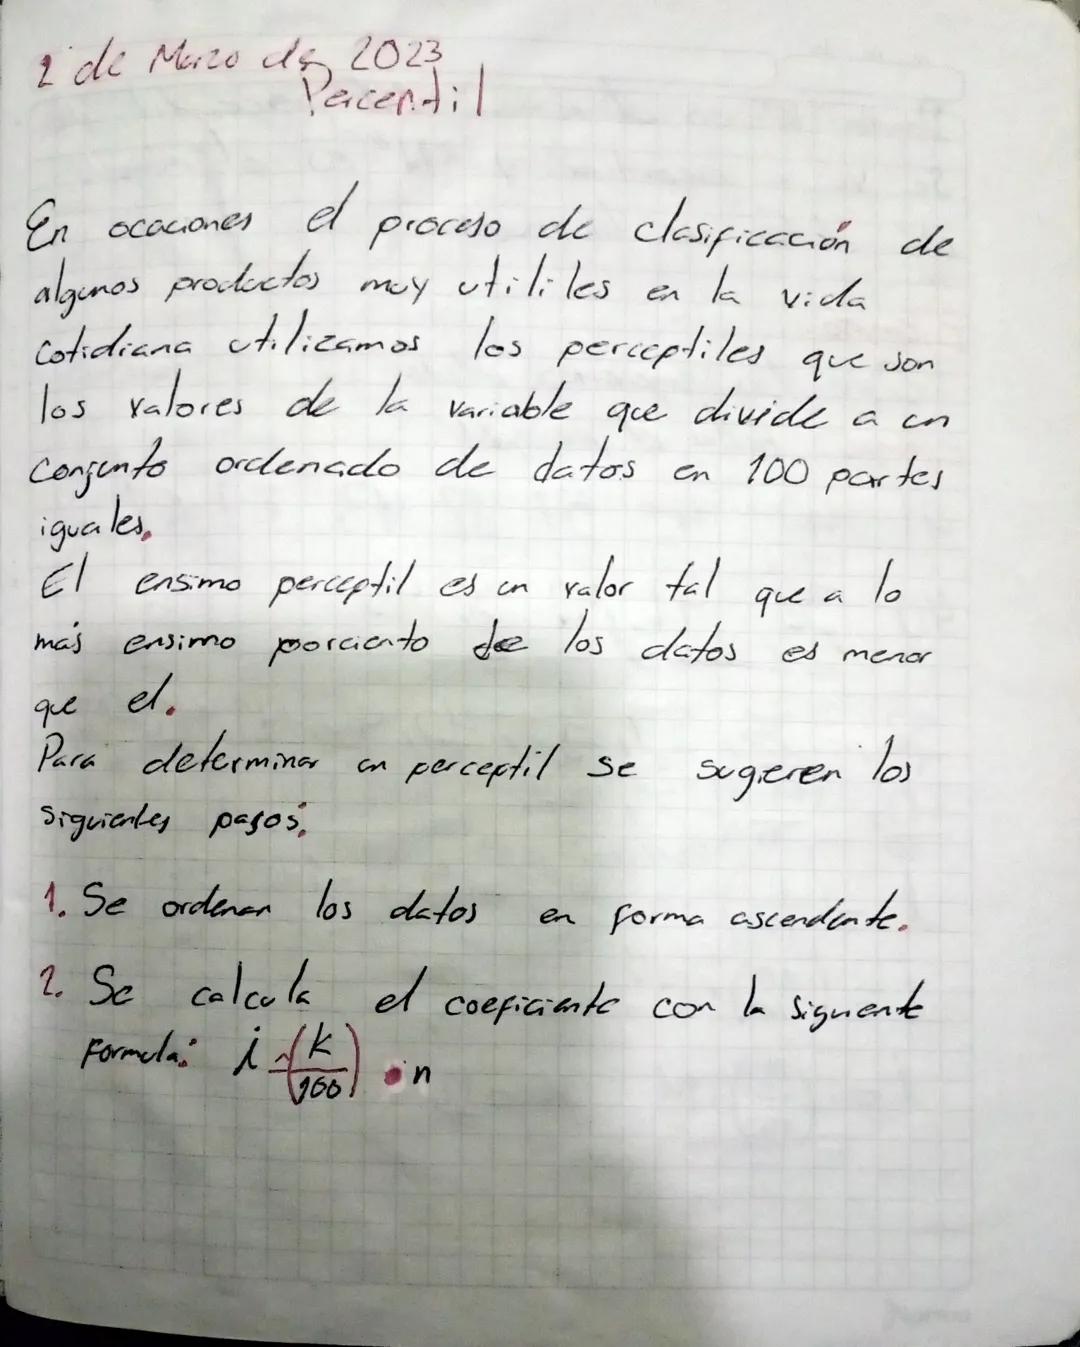 2 de Marzo de 2023
Percentil
En ocaciones el proceso de clasificación de
algunos productos muy utililes en la vida
cotidiana utilizamos los perceptiles que son
los valores de la variable que divide a un
conjunto ordenado de datos en 100 partes
iguales.
El ensimo perceptil es un valor tal que a lo
más ensimo porciento de los datos es menor
que el.
Para determinar un perceptil se sugieren los
siguientes pasos:
1. Se ordenan los datos en forma ascendente.
2. Se calcula el coeficiente con la siguiente
formula: i = (k/100) • n